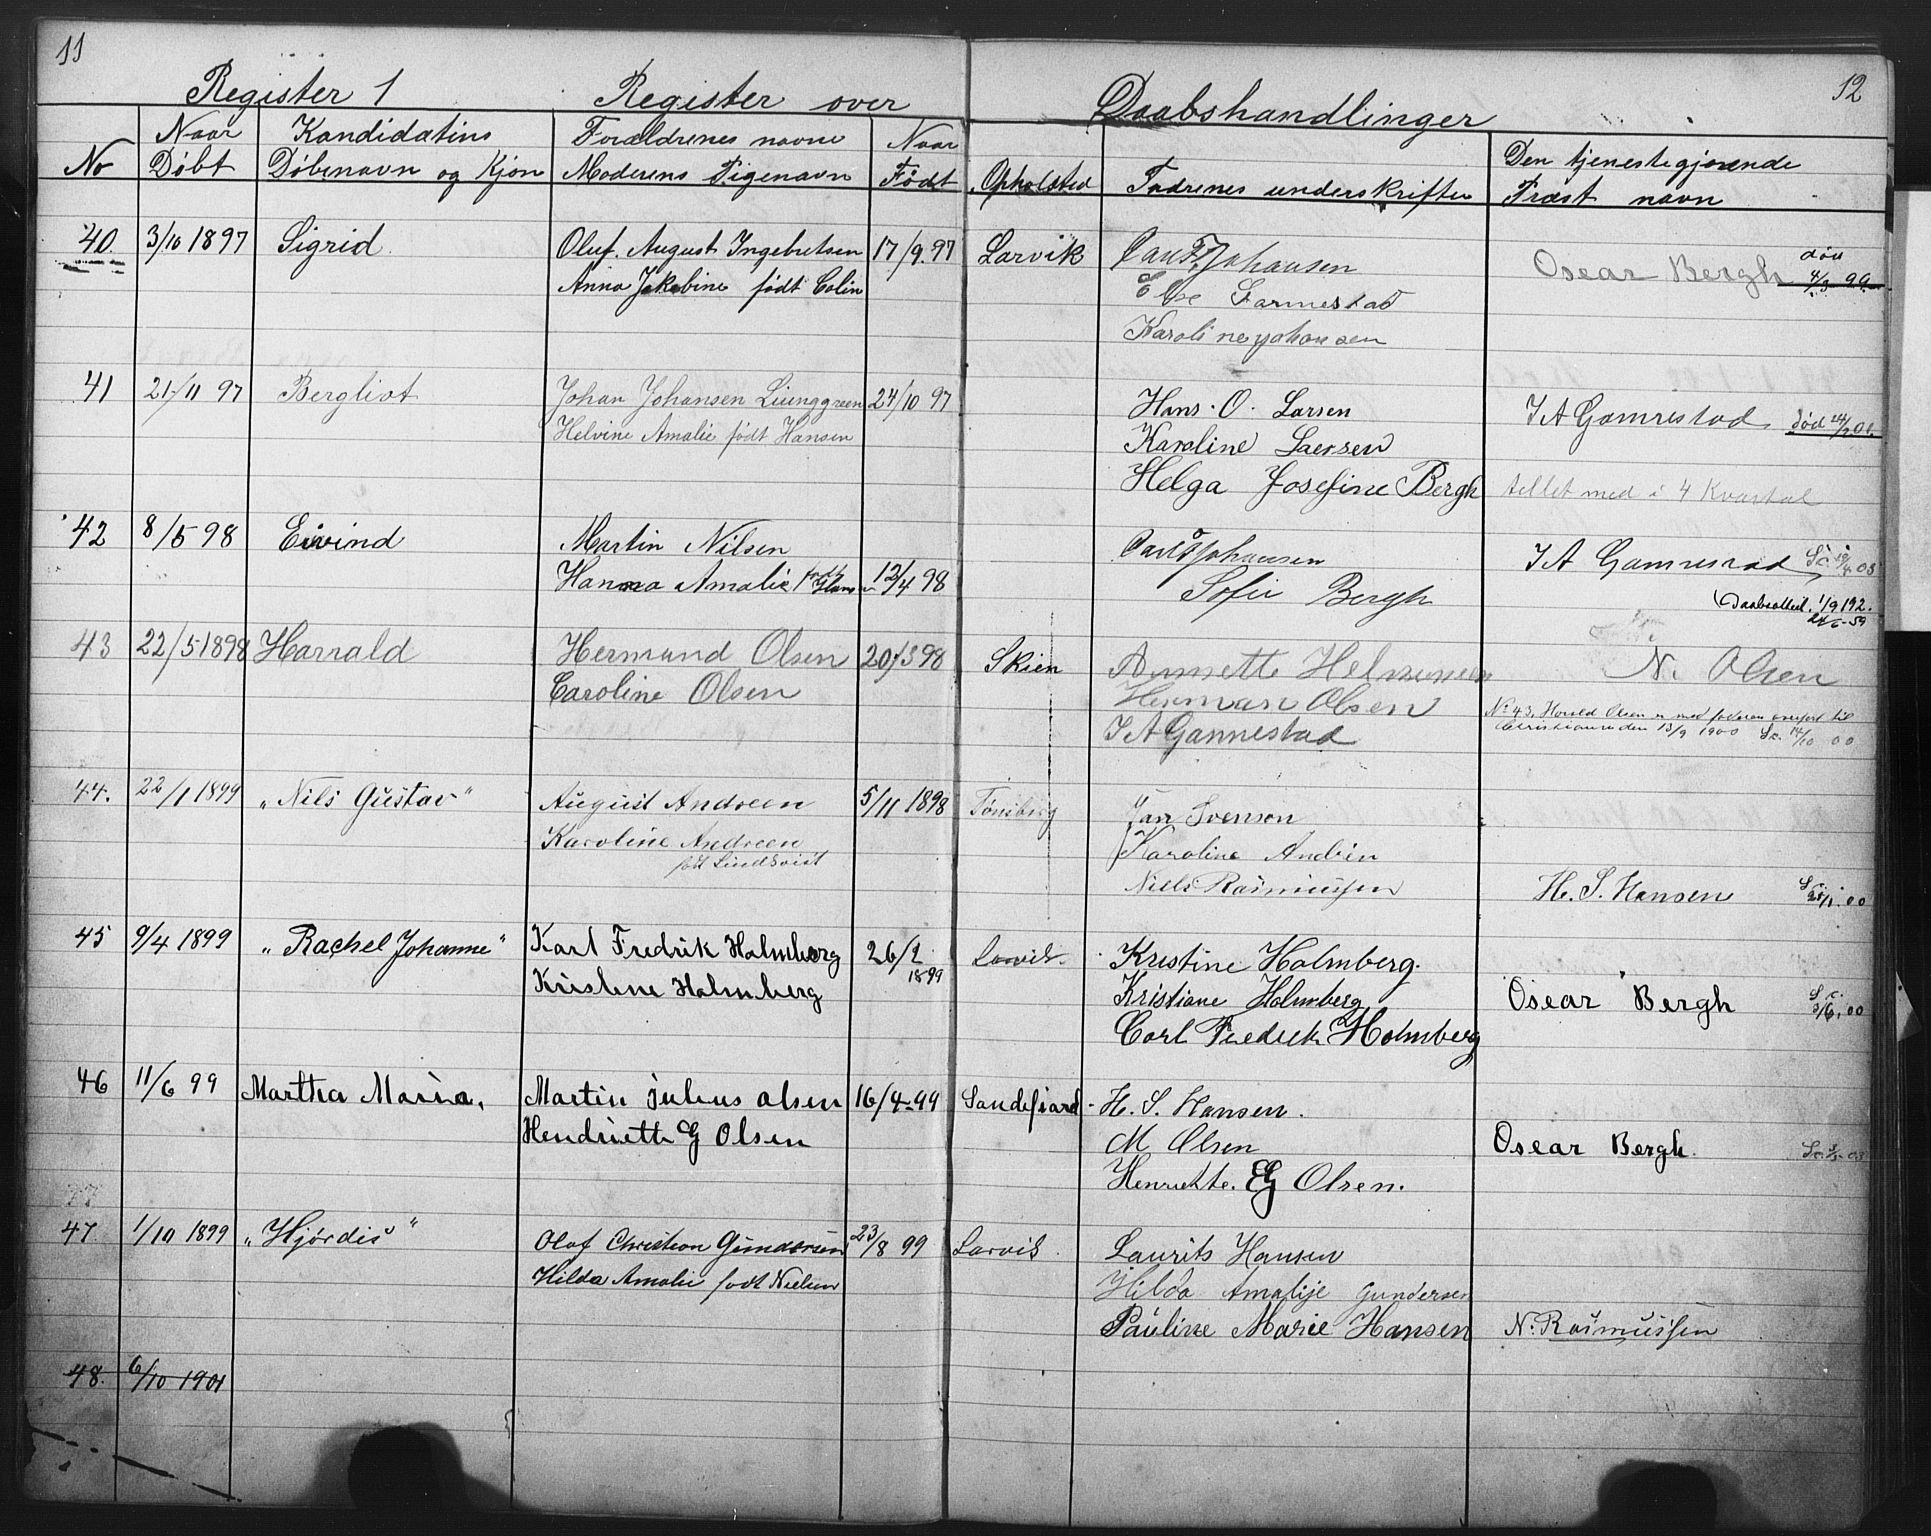 11
12
Register 1 Register over Daabshandlinger
No Naar Døbt Kandidatins Døbenavn og Kjøn Forældrenes navne Moderens Pigenavn Naar Født Opholsted Fadrenes underskrifter Den tjenestegjørende Præst navn
40. 3/10 1897 Sigrid Oluf. August Ingebretsen 17/9.97 Larvik Carl F. Johansen Oscar Bergh død 4/3 99.
Anna Jakobine født Colin Else Garmestad
Karoline Johansen
41 21/11 97 Bergliot Johan Johansen Liunggreen 24/10 97 Hans. O. Larsen I A Gamrestad død
Helvine Amalie født Hansen Karoline Laersen
Helga Josefine Bergh tellet med i 4 Kvartal
42 8/5 98 Eivind Martin Nilsen Carl F Johansen I A Gamrestad
Hanna Amalie født Hansen 12/4 98 Sofie Bergh
Daabsattest. 1/9 192.
43 22/5 1898 Harrald Hermand Olsen 20/3 98 Skien Annette Helmmen N. Olsen
Caroline Olsen Herman Olsen No 43. Harald Olsen er med faderen overført til
Christiania den 13/9 1900 Sc. 14/10 00
I A Gannestad
44. 22/1 1899 "Nils Gustav" August Andreen 5/11 1898 Tønsberg Jan Svenson
Karoline Andreen Karoline Andrin
født Lindkvist
Niels Rasmussen H. S. Hansen
45 9/4 1899 "Rachel Johanne" Karl Fredrik Holmberg 26/2 1899 Larvik. Kristine Holmberg.
Kristine Holmberg Kristiane Holmberg Oscar Bergh
Carl Fredrik Holmberg
46 11/6 99 Martha Maria. Martin Julius Olsen 16/4-99 Sandefiord H. S. Hansen.
Henriette G Olsen M Olsen Oscar Bergh.
Henriette. EG Olsen.
77
47 1/10 1899 "Hjørdis" Olaf Christian Gundersen 23/8 99 Larvik. Laurits Hansen
Hilda Amalie født Nielsen Hilda Amalije Gundersen
Pauline Marie Hansen N. Rasmussen
48. 6/10 1901